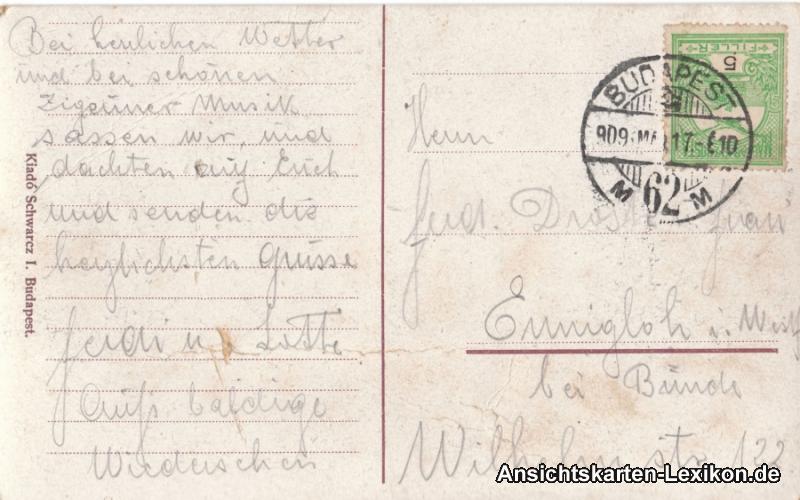 Bei herrlichen Wetter
und bei schönen
Zigeuner Musik
sassen wir, und
dachten auf Euch
und senden die
herzlichsten Grüsse
Ferdi u. Lotte
Aufs baldige
Wiedersehen
Kiadó Schwarcz I. Budapest.
5
FILLER
BUDAPEST
62
M M
Herrn
Ferd. Droste Frau
Ennigloh i. Westf
bei Bünde
Wilhelm str 122
Ansichtskarten-Lexikon.de